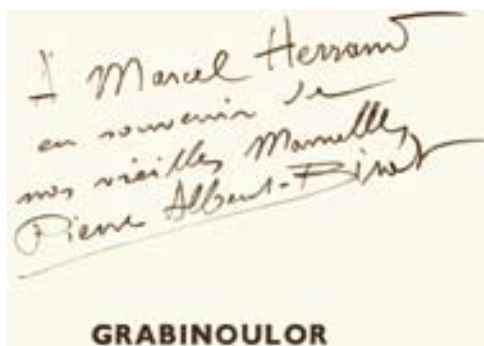 À Marcel Herrand
en souvenir de
nos vieilles Mamelles
Pierre Albert-Birot
GRABINOULOR